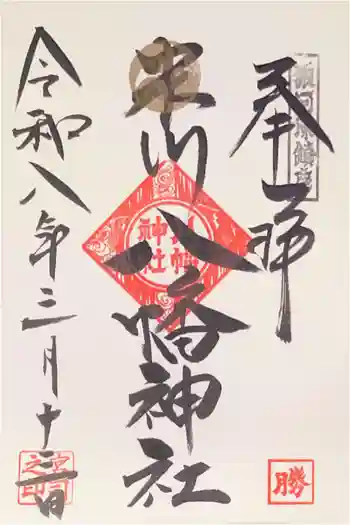 奉拝
川八幡神社
八幡
神社
令和八年三月十三日
宮司
之印
勝